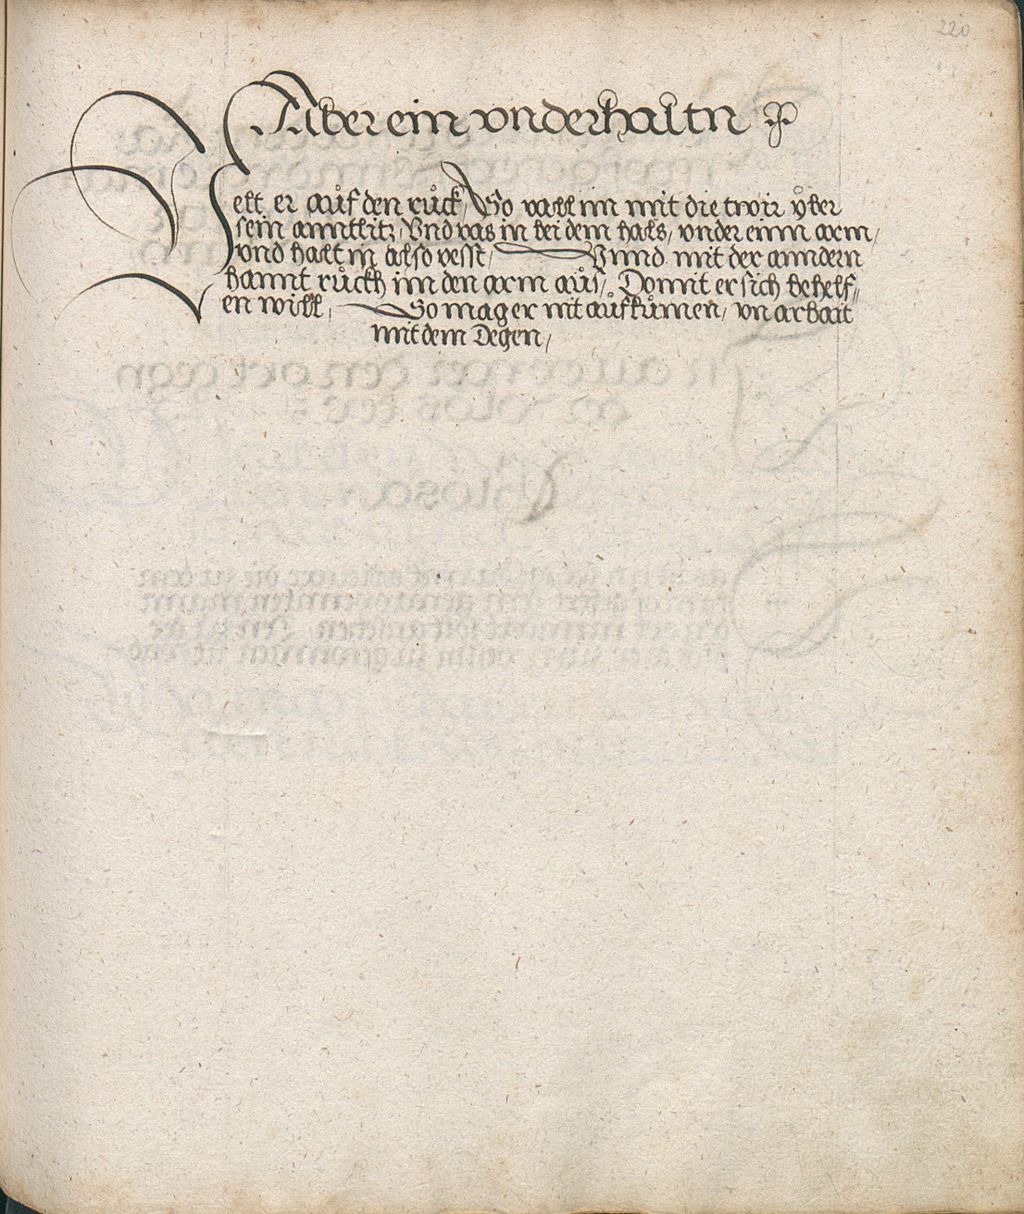 220
Aber ein vnderhaltn
Velt er auf den ruͦck, So vall im mit die twir uͦber
sein anntlitz, Vnd vas in bei dem hals, vnder einm arm,
vnd halt in also vesst, Vnnd mit der anndern
hannt ruͦckh im den arm auͦs, Domit er sich behelf„
en will, So mag er nit auͦfkuͦmen, vn arbait
mit dem Degen,